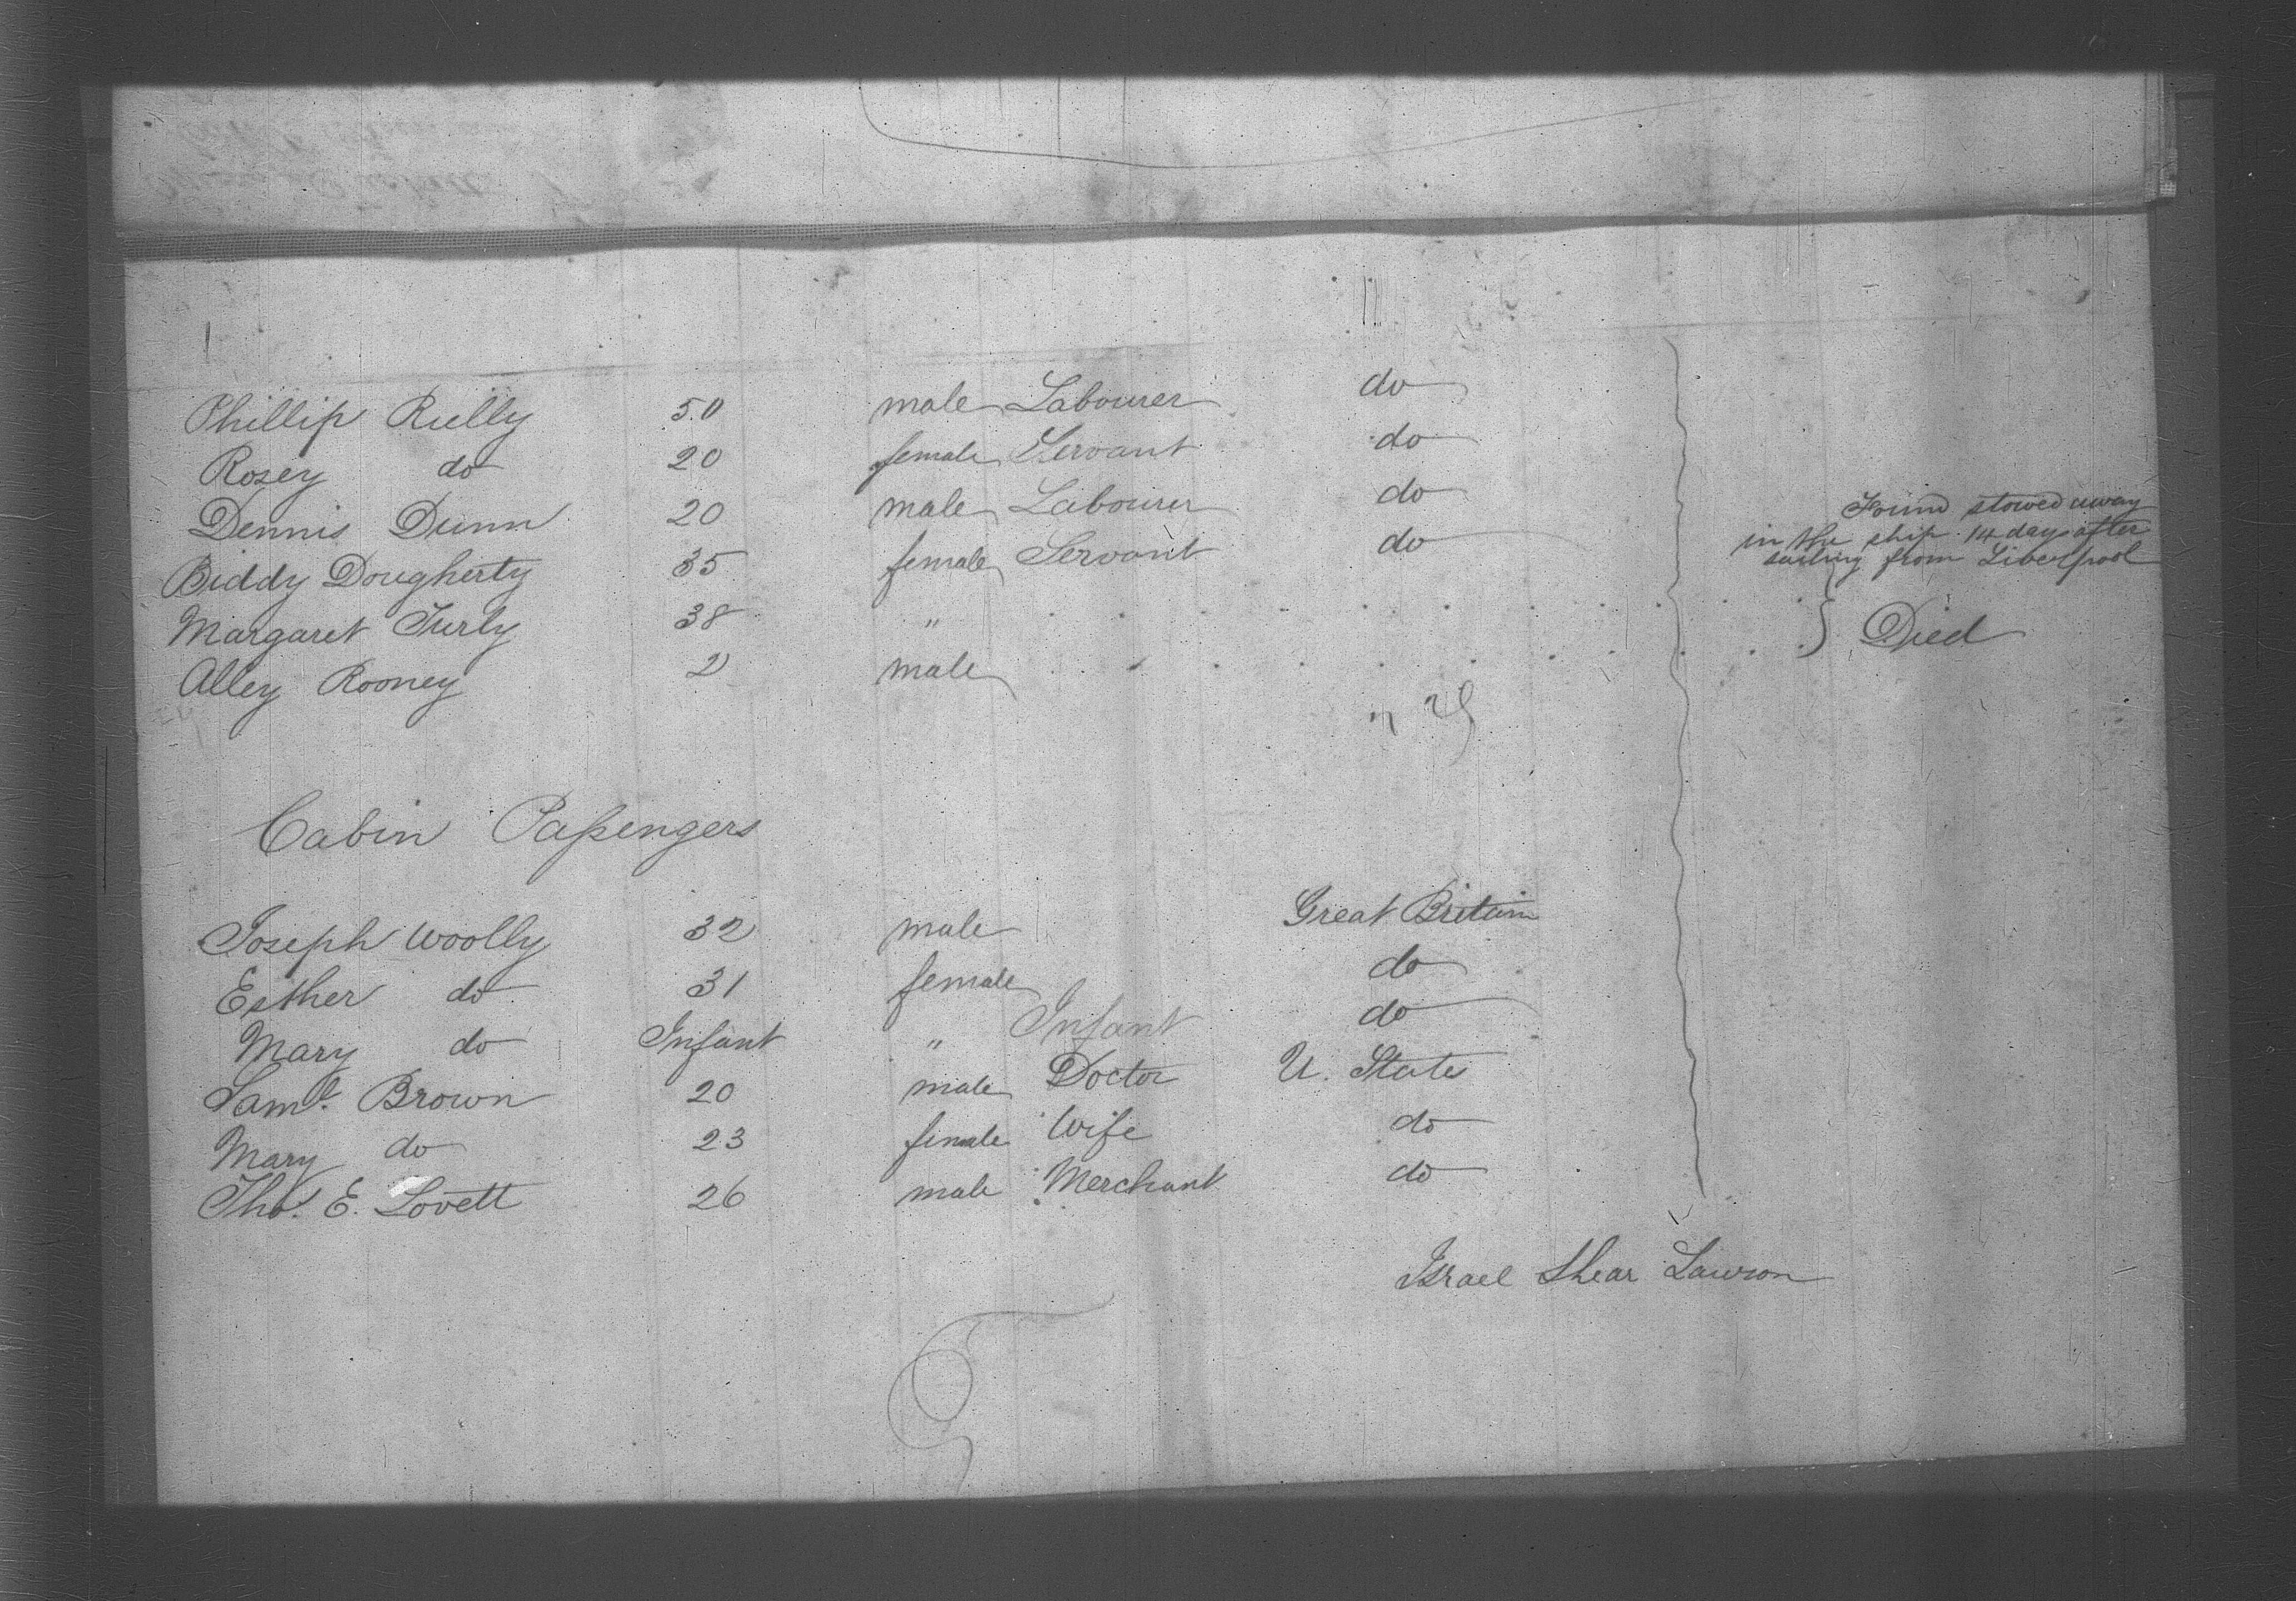 Phillip Rielly 50 male Labourer do
Rosey do 20 female Servant do
Dennis Dunn 20 male Labourer do
Found stowed away
in the ship 14 days after
sailing from Liverpool
Biddy Dougherty 35 female Servant do
Margaret Turly 38 "
} Died
Alley Rooney 2 male
Cabin Paſsengers
Joseph Woolly 32 male Great Britain
Esther do 31 female do
Mary do Infant " Infant do
Saml. Brown 20 male Doctor U. States
Mary do 23 female Wife do
Tho. E. Lovett 26 male Merchant do
Israel Shear Lawson